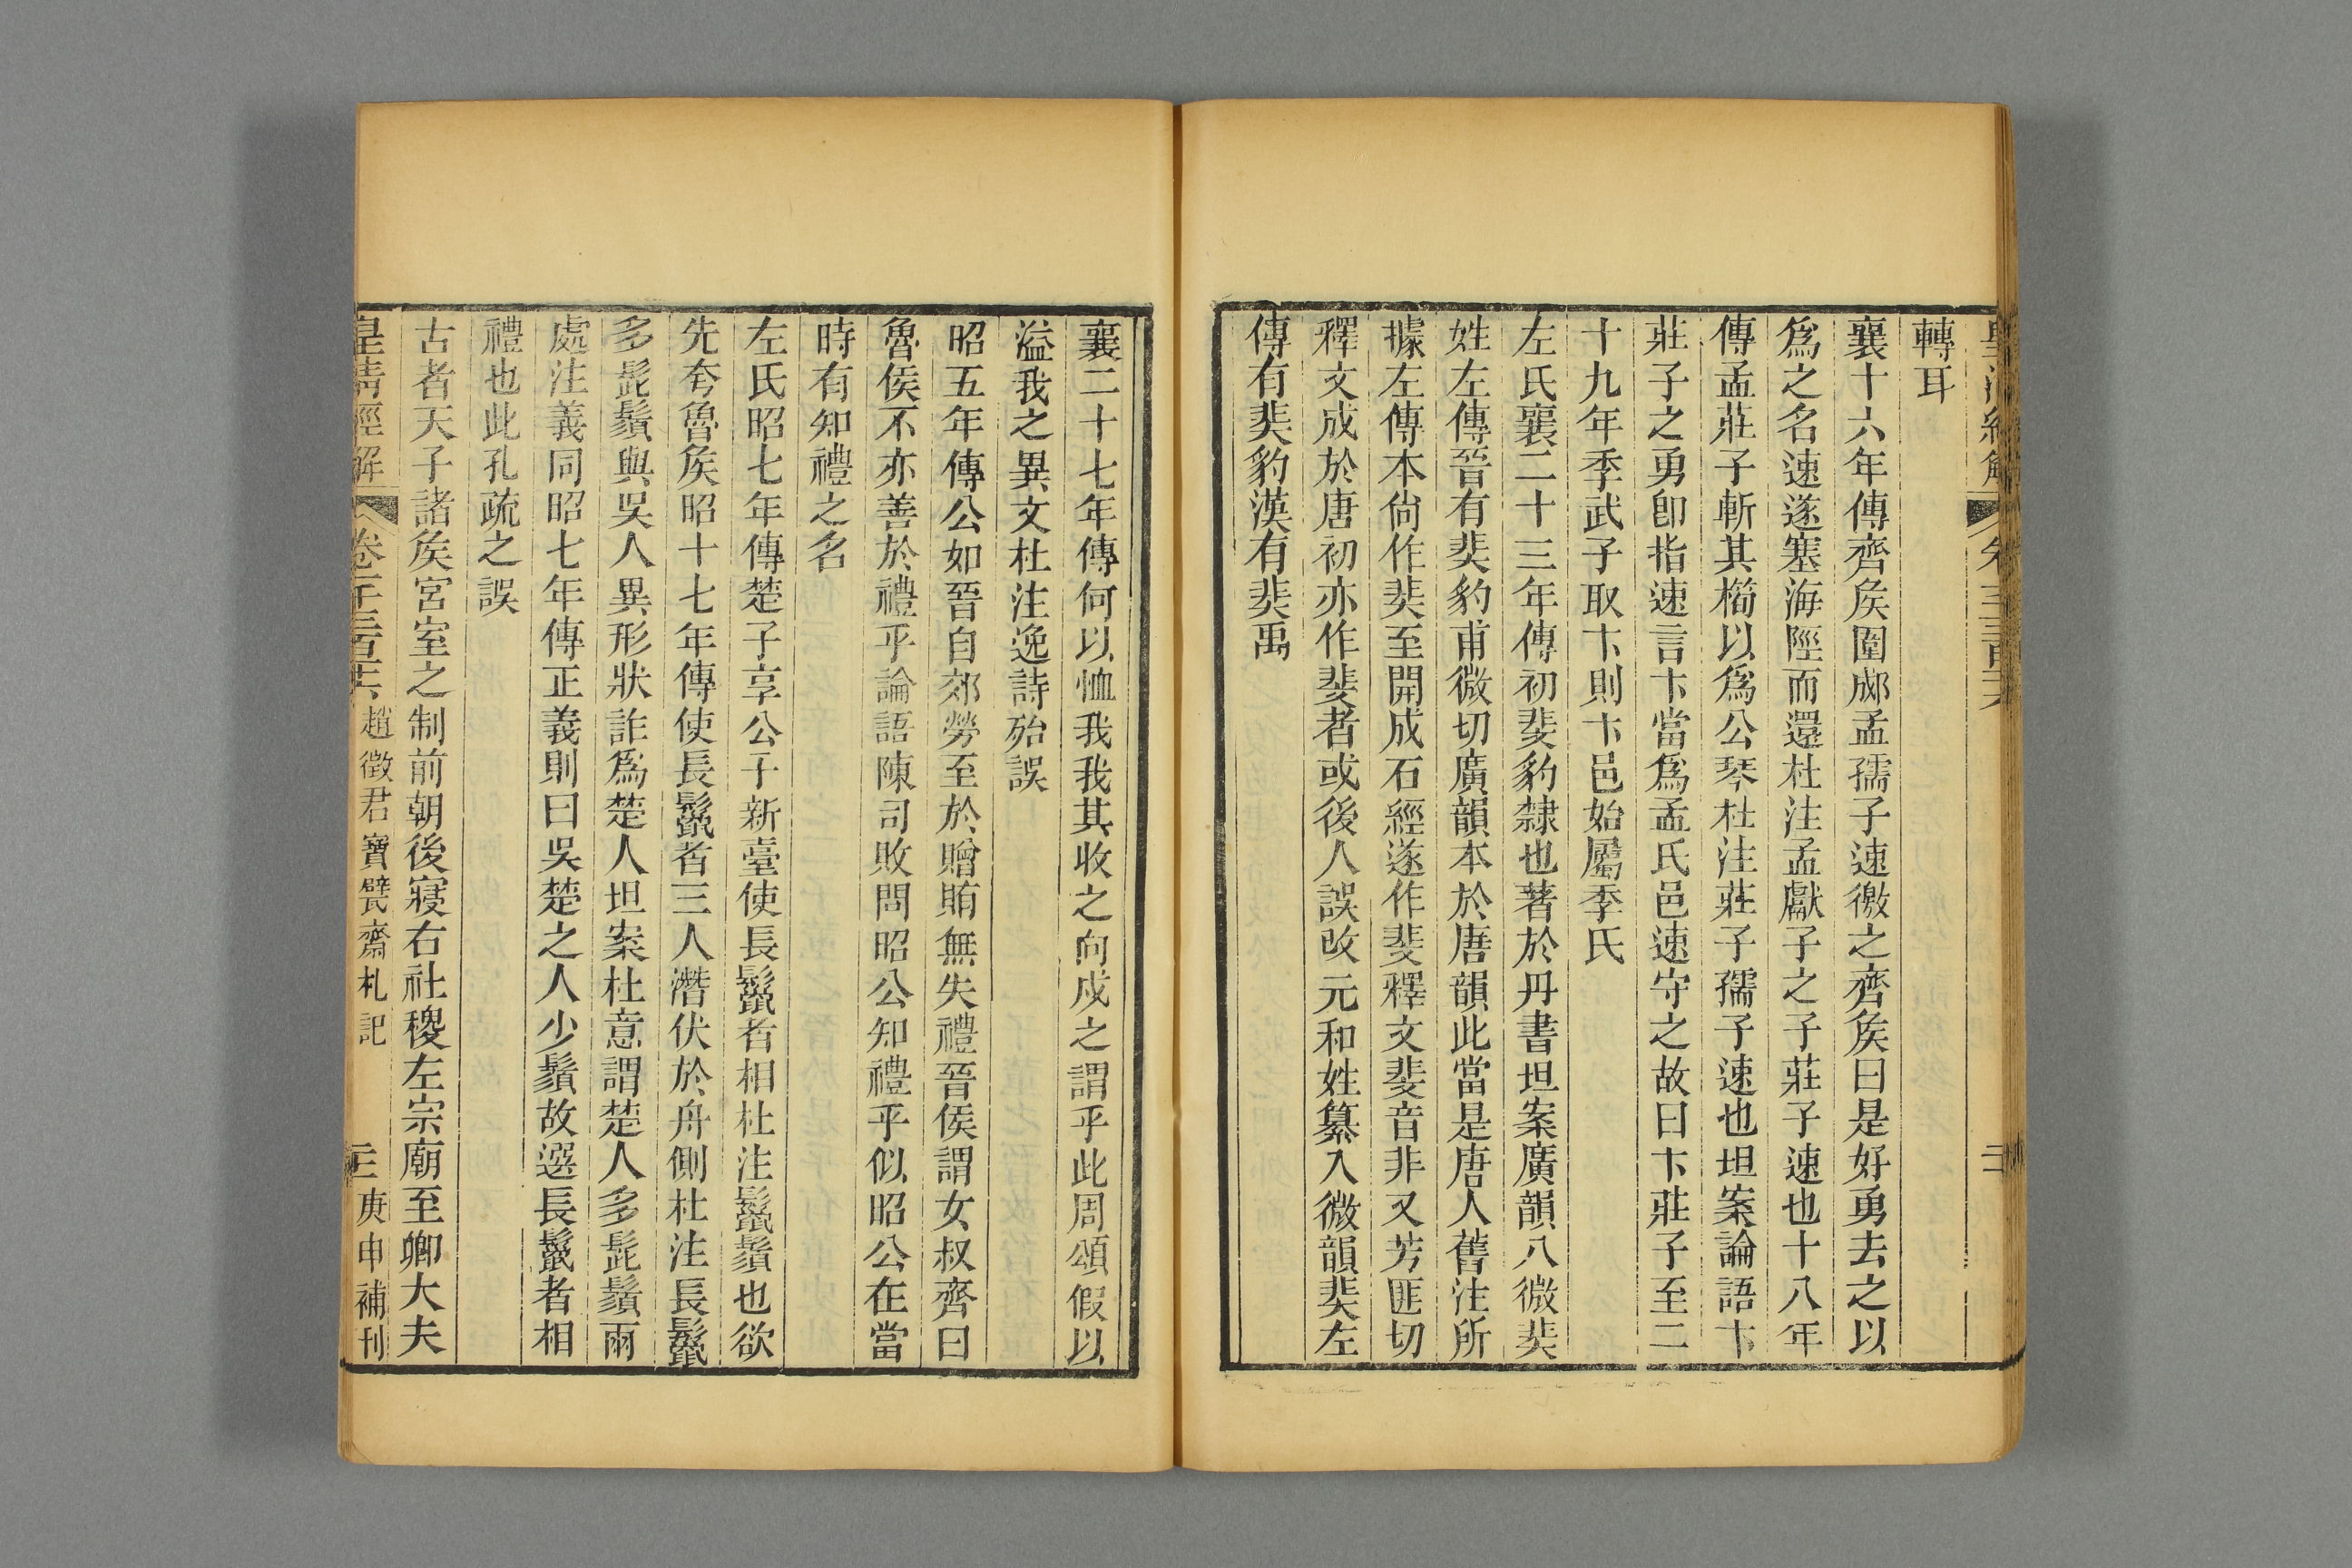 轉耳
襄十六年傳齊矦圍郕孟孺子速徼之齊矦曰是好勇去之以
爲之名速遂塞海陘而還杜注孟獻子之子莊子速也十八年
傳孟莊子斬其橁以爲公琴杜注莊子孺子速也坦案論語卞
莊子之勇卽指速言卞當爲孟氏邑速守之故曰卞莊子至二
十九年季武子取卞則卞邑始屬季氏
左氏襄二十三年傳初斐豹隸也著於丹書坦案廣韻八微裴
姓左傳晉有裴豹甫微切廣韻本於唐韻此當是唐人舊注所
據左傳本尙作裴至開成石經遂作斐釋文斐音非又芳匪切
釋文成於唐初亦作斐者或後人誤改元和姓纂入微韻裴左
傳有裴豹漢有裴禹
襄二十七年傳何以恤我我其收之向戍之謂乎此周頌假以
溢我之異文杜注逸詩殆誤
昭五年傳公如晉自郊勞至於贈賄無失禮晉侯謂女叔齊曰
魯侯不亦善於禮乎論語陳司敗問昭公知禮乎似昭公在當
時有知禮之名
左氏昭七年傳楚子享公于新臺使長鬣者相杜注鬣鬚也欲
先夸魯矦昭十七年傳使長鬣者三人潛伏於舟側杜注長鬣
多髭鬚與吳人異形狀詐爲楚人坦案杜意謂楚人多髭鬚兩
處注義同昭七年傳正義則曰吳楚之人少鬚故選長鬣者相
禮也此孔疏之誤
古者天子諸矦宮室之制前朝後寢右社稷左宗廟至卿大夫
皇清經解 卷一千三百十六 趙徵君寶甓齋札記 三 庚申補刊